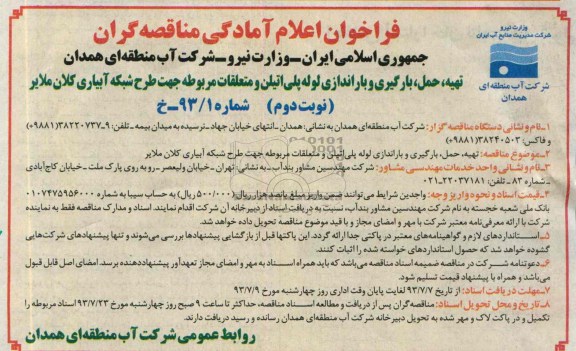 وزارت نیرو
شرکت مدیریت منابع آب ایران
شرکت آب منطقه‌ای
همدان
فراخوان اعلام آمادگی مناقصه گران
جمهوری اسلامی ایران ـ وزارت نیرو ـ شرکت آب منطقه‌ای همدان
تهیه، حمل، بارگیری و باراندازی لوله پلی اتیلن و متعلقات مربوطه جهت طرح شبکه آبیاری کلان ملایر
(نوبت دوم) شماره ۹۳/۱ـخ
۱ـ نام و نشانی دستگاه مناقصه گزار: شرکت آب منطقه‌ای همدان به نشانی: همدان ـ انتهای خیابان جهاد ـ نرسیده به میدان بیمه ـ تلفن: ۹ـ۳۸۲۲۰۷۳۷(۰۹۸۸۱)
و فاکس: ۳۸۲۴۰۵۰۲(۰۹۸۸۱)
۲ـ موضوع مناقصه: تهیه، حمل، بارگیری و باراندازی لوله پلی اتیلن و متعلقات مربوطه جهت طرح شبکه آبیاری کلان ملایر
۳ـ نام و نشانی واحد خدمات مهندسی مشاور: شرکت مهندسین مشاور بندآب ـ به نشانی: تهران ـ خیابان ولیعصر ـ روبه روی پارک ملت ـ خیابان کاج آبادی
ـ شماره ۸۳ ـ تلفن: ۲۲۰۳۷۱۸۱ـ۰۲۱
۴ـ قیمت اسناد و نحوه واریز وجه: واجدین شرایط می‌توانند ضمن واریز مبلغ پانصد هزار ریال (۵۰۰/۰۰۰ ریال) به حساب سیبا به شماره ۰۱۰۷۴۷۵۹۵۶۰۰۰
بانک ملی شعبه خجسته به نام شرکت مهندسین مشاور بندآب، نسبت به دریافت اسناد از دبیرخانه آن شرکت اقدام نمایند. اسناد و مدارک مناقصه فقط به نماینده
شرکت با ارائه معرفی‌نامه معتبر شرکت با مهر و امضای مجاز و با قید موضوع مناقصه تحویل داده خواهد شد.
۵ـ استانداردهای لازم و گواهینامه‌های معتبر در پاکتی جدا ارائه گردد. این پاکتها قبل از بازگشایی پیشنهادها بررسی می‌شوند و تنها پیشنهادهای شرکت‌هایی
گشوده خواهد شد که حصول استانداردهای خواسته شده را اثبات کنند.
۶ـ دعوتنامه شرکت در مناقصه ضمیمه اسناد مناقصه می‌باشد که باید همراه اسناد به مهر و امضای مجاز تعهدآور پیشنهاددهنده برسد. امضای اصل قابل قبول
می‌باشد و همراه با پیشنهاد قیمت تسلیم شود.
۷ـ مهلت دریافت اسناد: از تاریخ ۹۳/۷/۷ لغایت پایان وقت اداری روز چهارشنبه مورخ ۹۳/۷/۹
۸ـ تاریخ و محل تحویل اسناد: مناقصه‌گران پس از دریافت و مطالعه اسناد مناقصه، حداکثر تا ساعت ۹ صبح روز چهارشنبه مورخ ۹۳/۷/۲۳ اسناد مربوطه را
تکمیل و در پاکت لاک و مهر شده به تحویل دبیرخانه شرکت آب منطقه‌ای همدان رسانده و رسید دریافت دارند.
روابط عمومی شرکت آب منطقه‌ای همدان